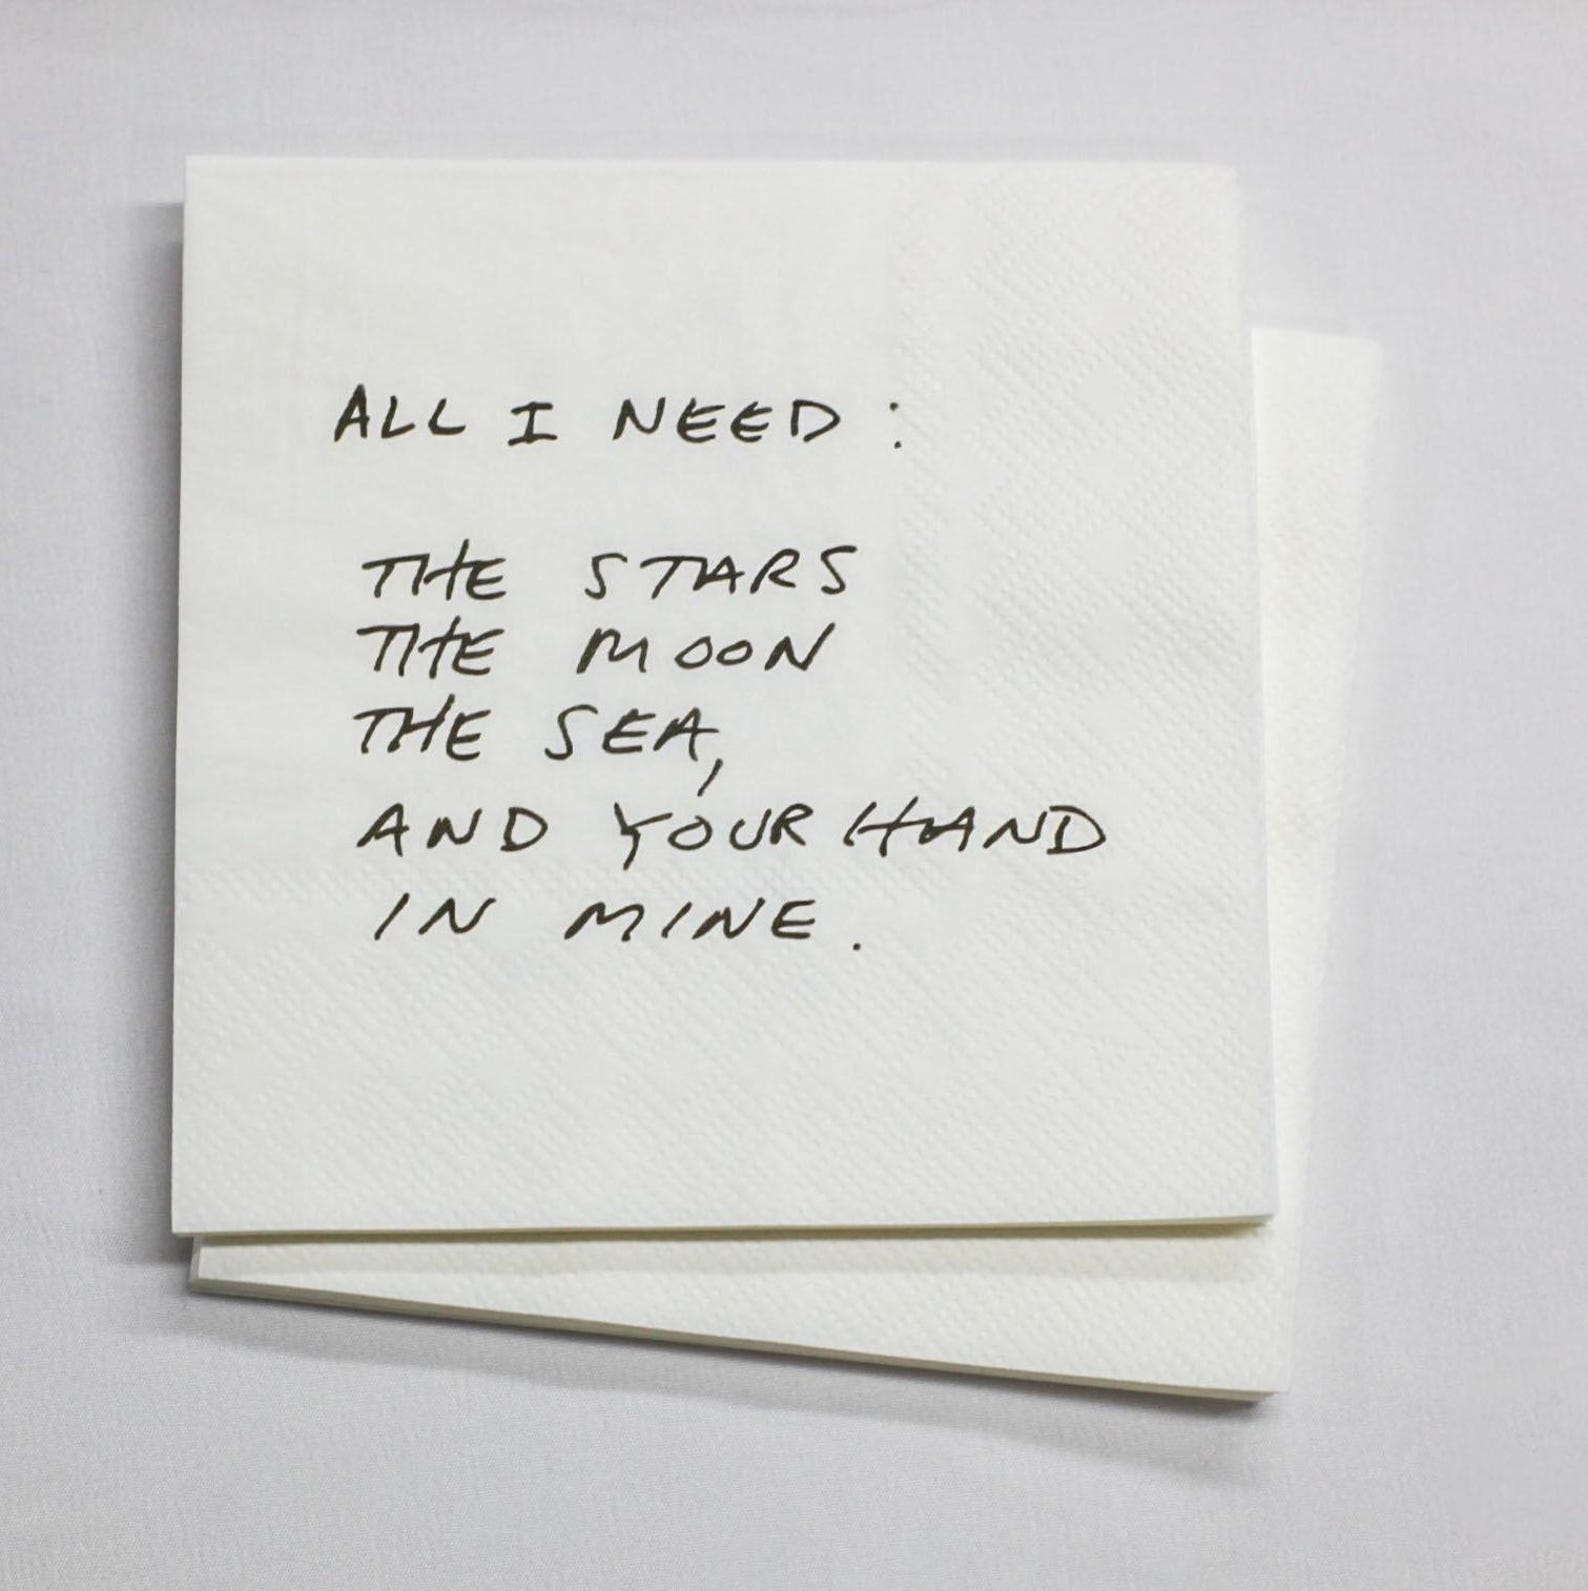 ALL I NEED:
THE STARS
THE MOON
THE SEA,
AND YOUR HAND
IN MINE.